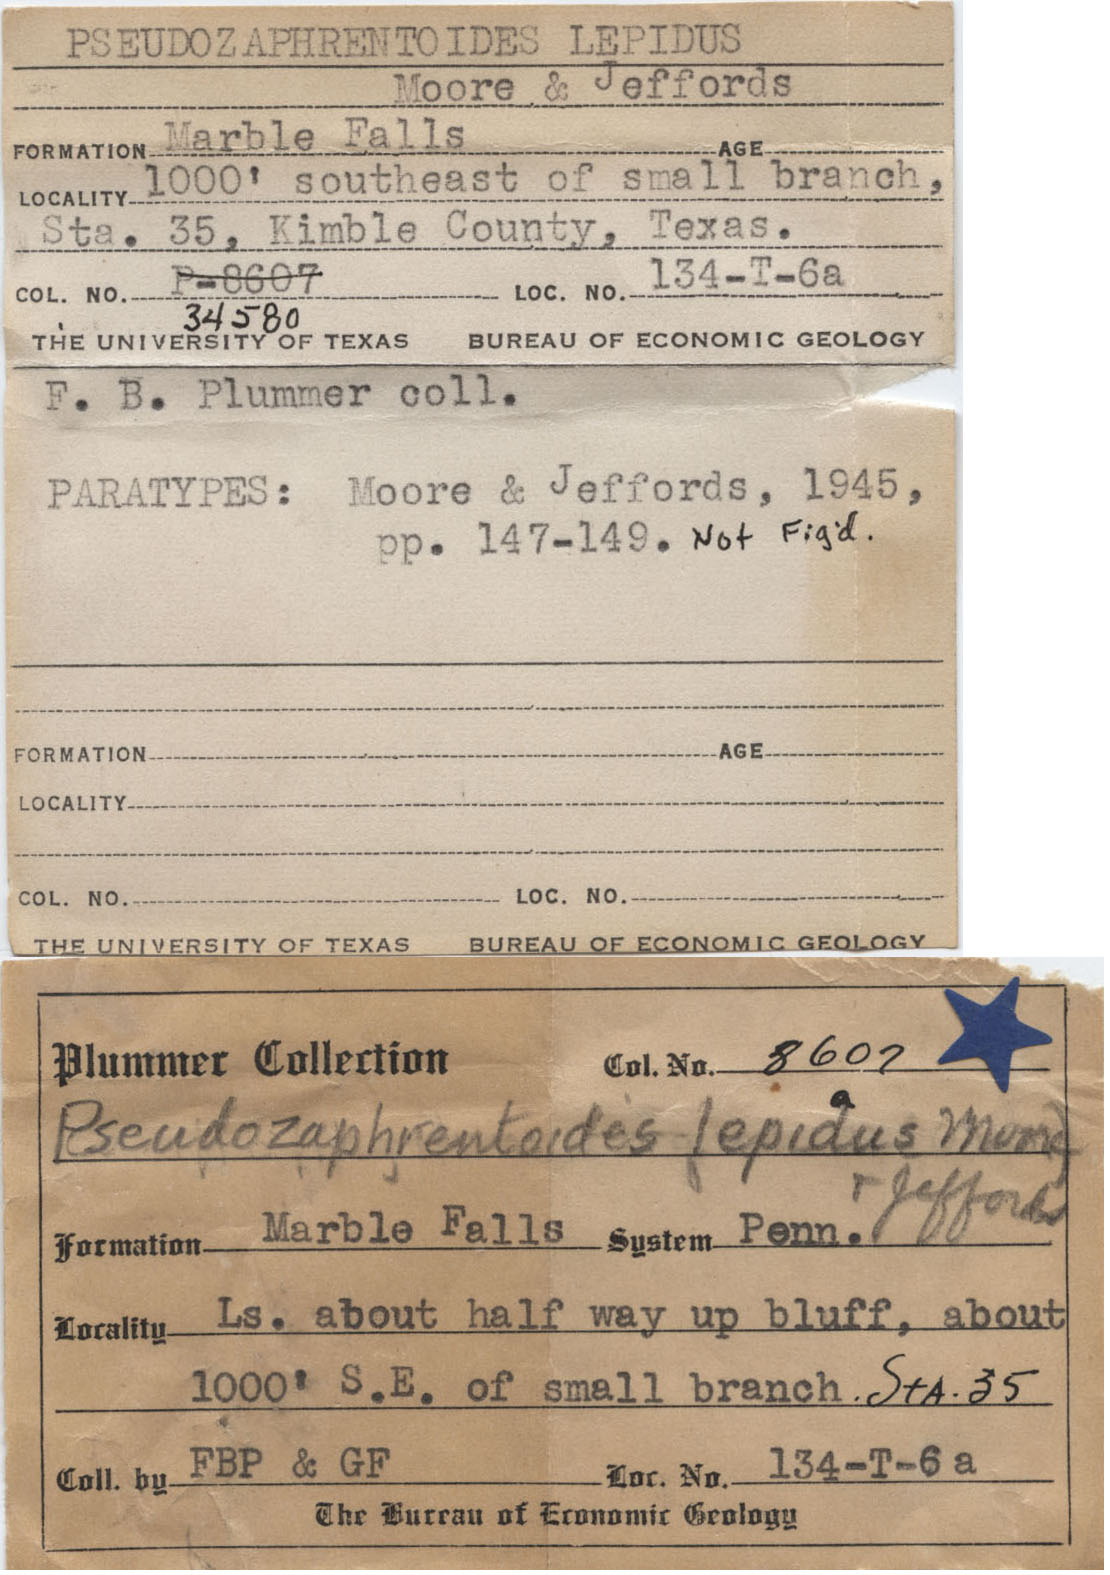 PSEUDOZAPHRENTOIDES LEPIDUS
Moore & Jeffords
FORMATION Marble Falls AGE
LOCALITY 1000' southeast of small branch,
Sta. 35, Kimble County, Texas.
COL. NO. P-8607 LOC. NO. 134-T-6a
34580
THE UNIVERSITY OF TEXAS BUREAU OF ECONOMIC GEOLOGY
F. B. Plummer coll.
PARATYPES: Moore & Jeffords, 1945,
pp. 147-149. Not Fig'd.
FORMATION AGE
LOCALITY
COL. NO. LOC. NO.
THE UNIVERSITY OF TEXAS BUREAU OF ECONOMIC GEOLOGY
Plummer Collection Col. No. 8607
a
Pseudozaphrentoides lepidus Moore
& Jeffords
Formation Marble Falls System Penn.
Locality Ls. about half way up bluff, about
1000' S.E. of small branch. Sta. 35
Coll. by FBP & GF Loc. No. 134-T-6a
The Bureau of Economic Geology